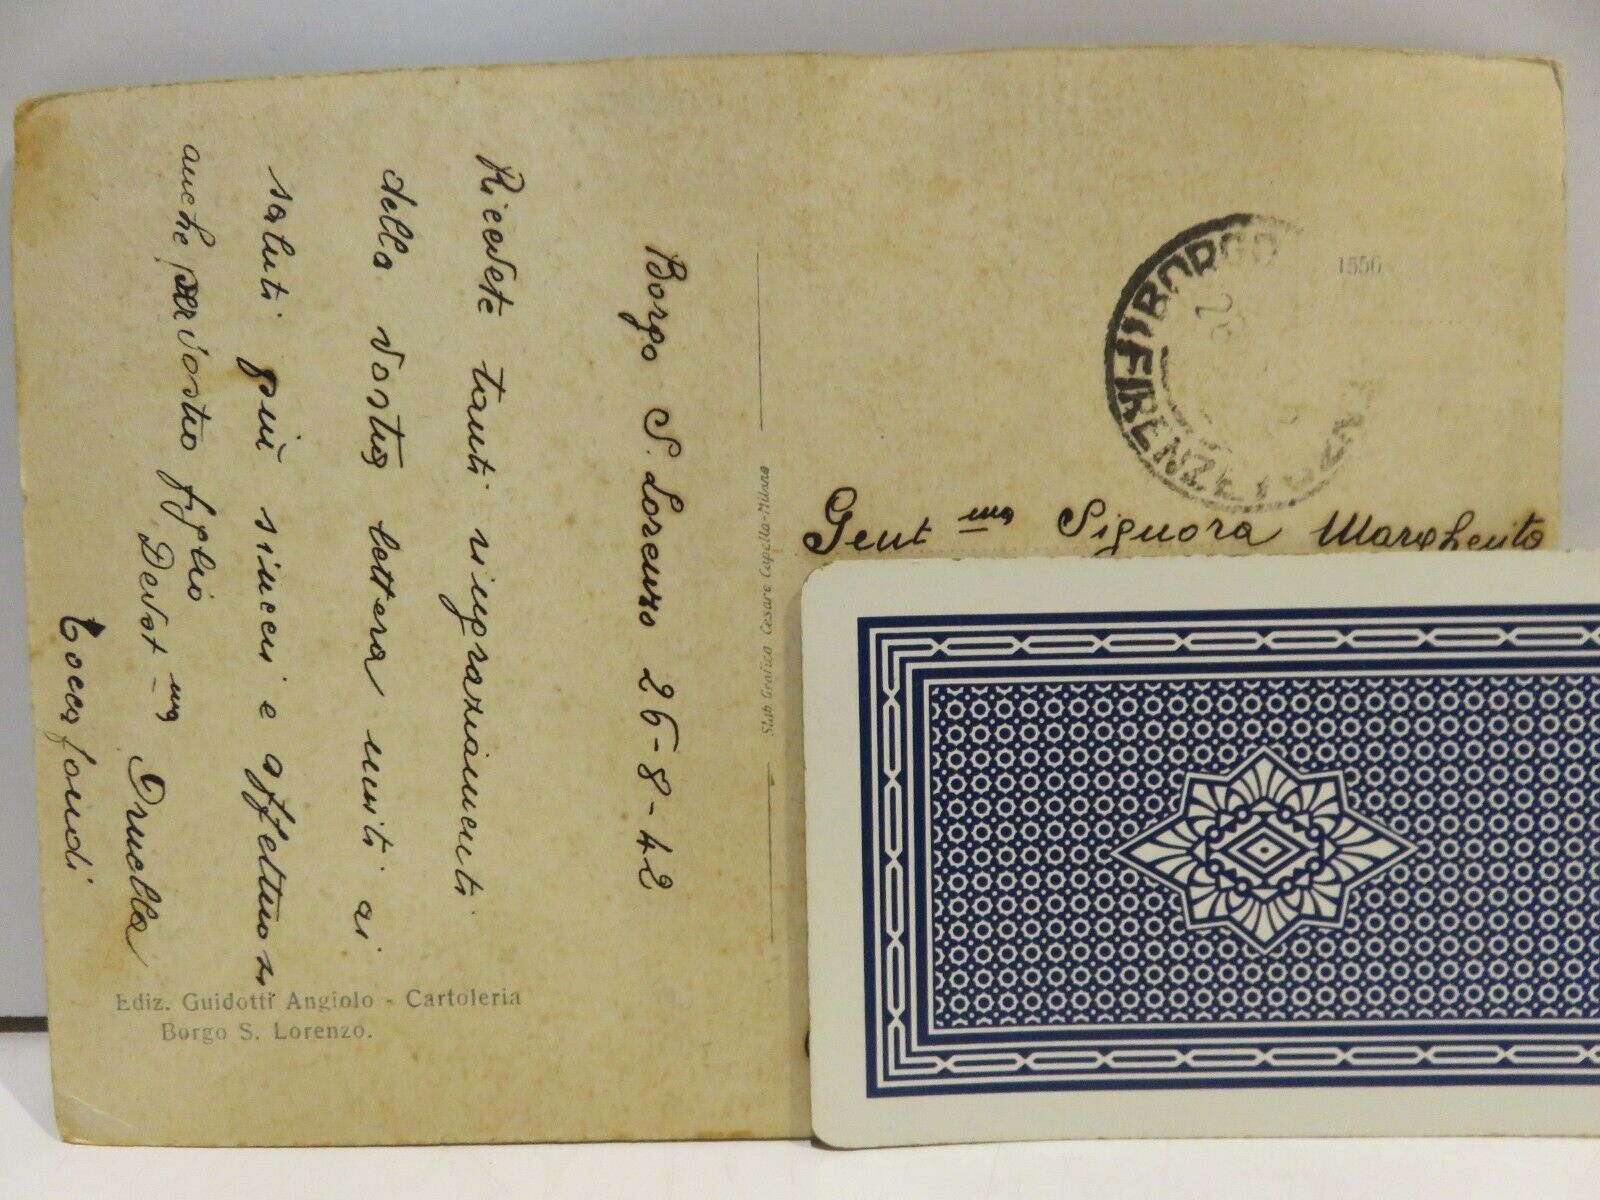 Borgo S. Lorenzo 26-8-42
Ricevete tanti ringraziamenti
della vostra lettera uniti ai
saluti più sinceri e affettuosi
anche per vostro figlio
Devot ma Druella
Toccafondi
Ediz. Guidotti Angiolo - Cartoleria
Borgo S. Lorenzo.
Stab Grafico Cesare Capello-Milano
BORGO
FIRENZE
26
1556
Gent ma Signora Margherita